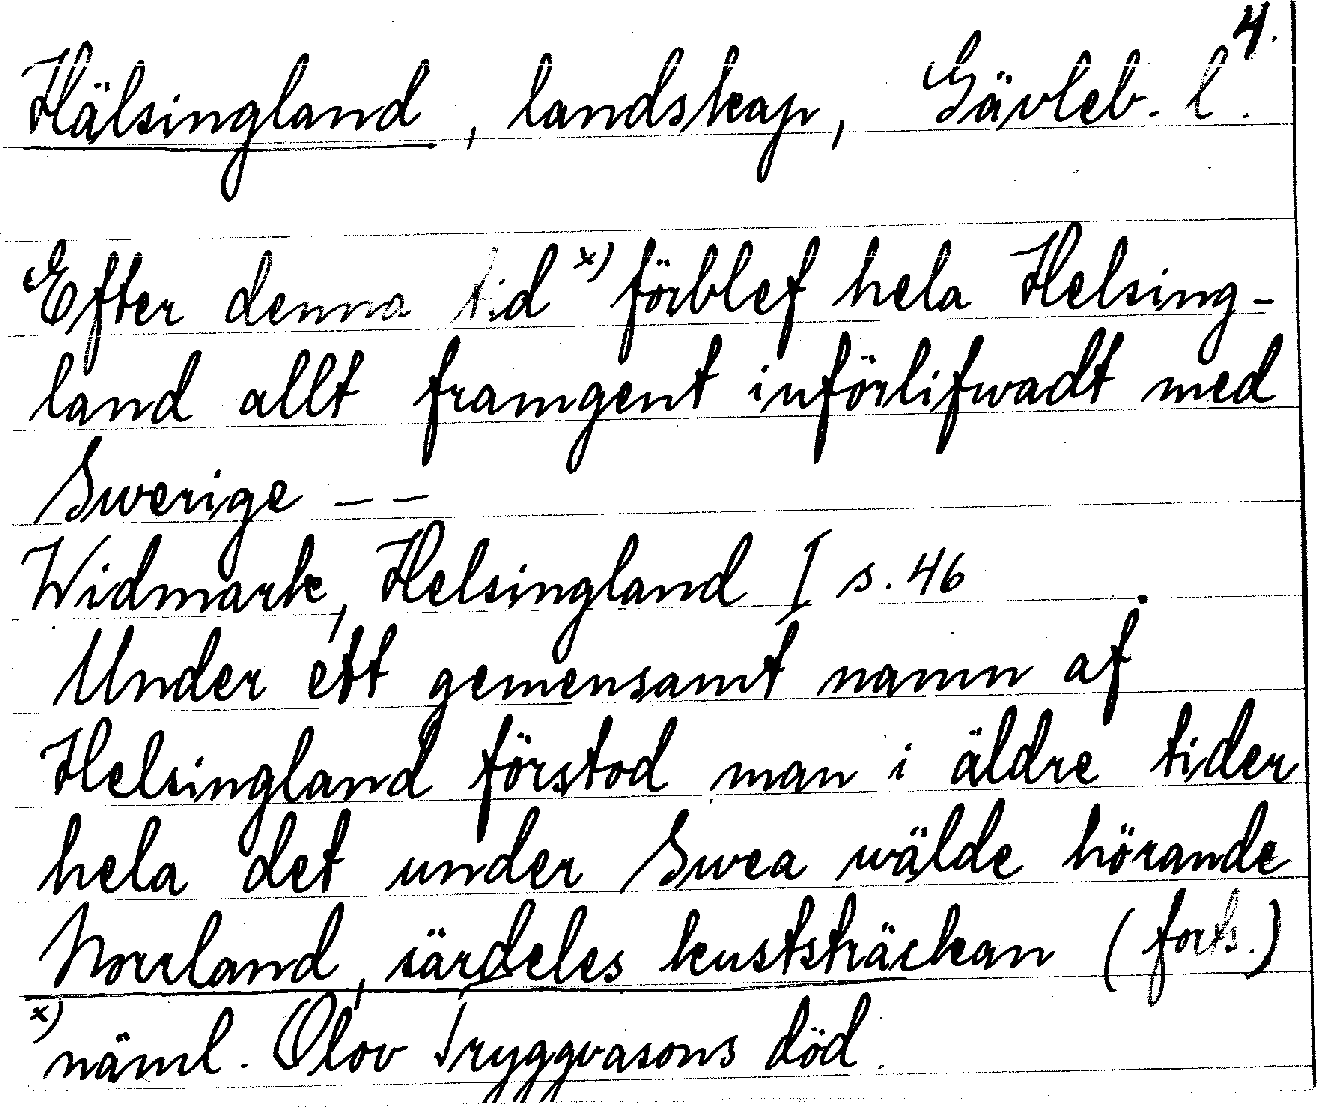 4.
Hälsingland, landskap, Gävleb. l.
Efter denna tid x) förblef hela Helsing-
land allt framgent införlifwadt med
Swerige – –
Widmark, Helsingland I s. 46.
Under ett gemensamt namn af
Helsingland förstod man i äldre tider
hela det under Swea wälde hörande
Norrland, särdeles kuststräckan (forts.)
x) näml. Olov Tryggvasons död.